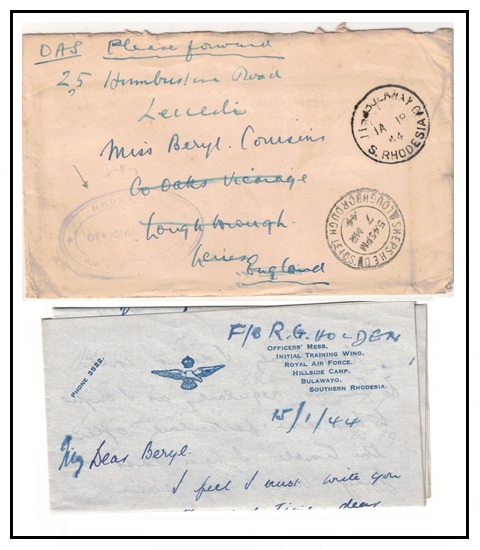 OAS Please forward
25 Humberstone Road
Miss Beryl. Cousins
Co Oaks Vicarage
Loughborough.
Leics.
England
BULAWAYO
1A 18
44
S. RHODESIA
SHEPSHED
LOUGHBOROUGH
5.45PM
7 MR
44
RHODE
OFFICIAL
AIR
F/O R.G. HOLDEN
OFFICERS' MESS,
INITIAL TRAINING WING,
ROYAL AIR FORCE,
HILLSIDE CAMP,
BULAWAYO,
SOUTHERN RHODESIA.
PHONE 3522.
15/1/44
My Dear Beryl.
I feel I must write you
dear